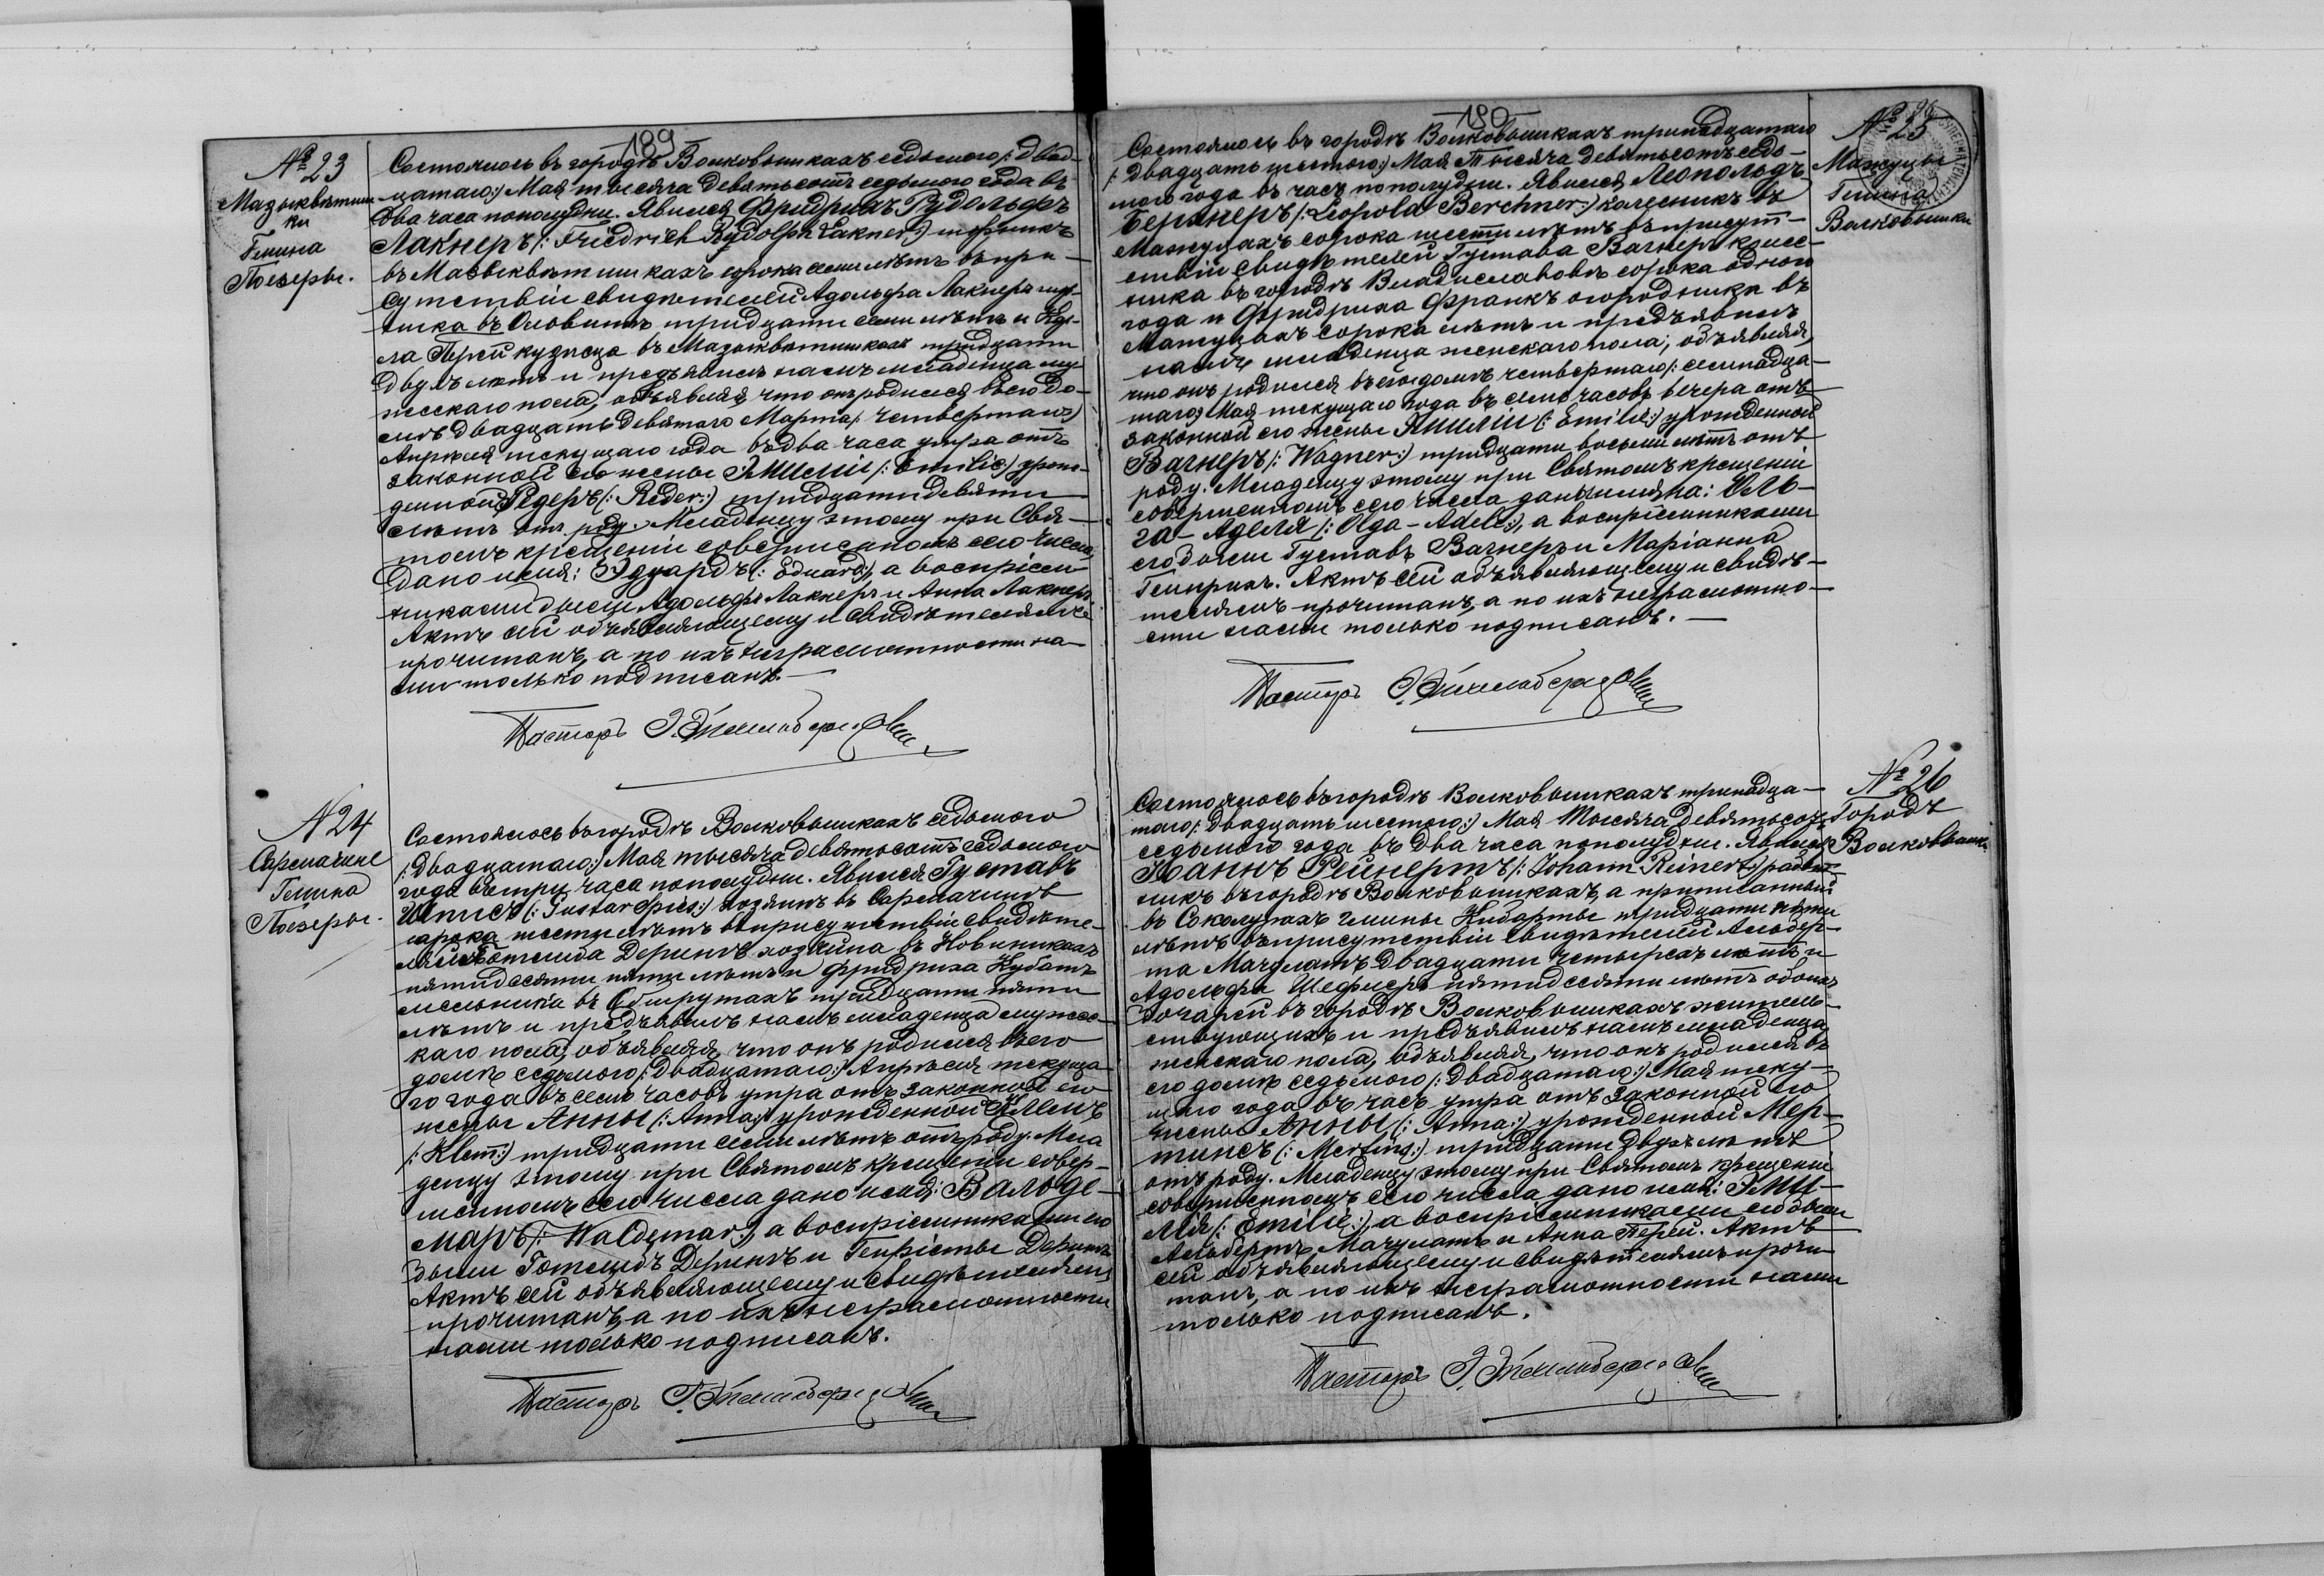 189
№ 23
Мазыквѣтиш-
ки
Гмина
Поезеры.
Состоялось въ городѣ Волковышкахъ седьмого /: двад-
цатаго :/ Мая тысяча девятьсотъ седьмого года въ
два часа пополудни. Явился Фридрихъ Рудольфъ
Лакнеръ /: Friedrich Rydolph Lakner :/
въ Мазыквѣтишкахъ сорока семи лѣтъ въ при-
сутствіи свидѣтелей Адольфа Лакнеръ
въ Оловитъ тридцати семи лѣтъ и
Перей кузнеца въ Мазыквѣтишкахъ тридцати
двухъ лѣтъ и предъявилъ намъ младенца му-
жескаго пола, объявляя, что онъ родился въ его до-
мѣ двадцать девятаго Марта /: четвертаго :/
Апрѣля текущаго года въ два часа утра отъ
законной его жены Эмиліи /: Emilie :/ урож-
денной Редеръ /: Reder :/ тридцати девяти
лѣтъ отъ роду. Младенцу этому при Свя-
томъ крещеніи совершенномъ сего числа
дано имя: Эдуардъ /: Eduard :/, а воспріем-
никами были Адольфъ Лакнеръ и Анна Лакнеръ.
Актъ сей объявляющему и свидѣтелямъ
прочитанъ, а по ихъ неграмотности на-
ми только подписанъ.
Пасторъ
№ 24
Сармачине
Гмина
Поезеры.
Состоялось въ городѣ Волковышкахъ седьмого
/: двадцатаго :/ Мая тысяча девятьсотъ седьмого
года въ три часа пополудни. Явился Густавъ
Шписъ /: Gustav Spies :/ хозяинъ въ Сармачинѣ
сорока шести лѣтъ въ присутствіи свидѣте-
лей Готлиба Дерингъ хозяина въ Новиникахъ
пятидесяти пяти лѣтъ и Фридриха Кубатъ
мельника въ Обшрутахъ тридцати пяти
лѣтъ и предъявилъ намъ младенца мужес-
каго пола, объявляя, что онъ родился въ его
домѣ седьмого /: двадцатаго :/ Апрѣля текуща-
го года въ семь часовъ утра отъ законной его
жены Анны /: Anna :/ урожденной Клемъ
/: Klem :/ тридцати семи лѣтъ отъ роду. Мла
денцу этому при Святомъ крещеніи совер-
шенномъ сего числа дано имя: Вальде-
маръ /: Waldemar :/, а воспріемниками его
были Готлибъ Дерингъ и Генріетта Дерингъ.
Актъ сей объявляющему и свидѣтелямъ
прочитанъ, а по ихъ неграмотности
нами только подписанъ.
Пасторъ
190
№ 25
Мажуцы
Гмина
Волковышки
Состоялось въ городѣ Волковышкахъ тринадцатаго
/: двадцать шестого :/ Мая тысяча девятьсотъ седь-
мого года въ часъ пополудни. Явился Леопольдъ
Берхнеръ /: Leopold Berchner :/ колесникъ въ
Мажуцахъ сорока шести лѣтъ въ присут-
ствіи свидѣтелей Густава Вагнеръ
въ городѣ Владиславовѣ сорока одного
года и Фридриха Франкъ огородника въ
Мажуцахъ сорока лѣтъ и предъявилъ
намъ младенца женскаго пола, объявляя,
что онъ родился въ его домѣ четвертаго /: семнадца-
таго :/ Мая текущаго года въ семь часовъ вечера отъ
законной его жены Эмиліи /: Emilie :/ урожденной
Вагнеръ /: Wagner :/ тридцати восьми лѣтъ отъ
роду. Младенцу этому при Святомъ крещеніи
совершенномъ сего числа даны имяна: Оль-
га-Аделя /: Olga-Adele :/, а воспріемниками
его были Густавъ Вагнеръ и Маріанна
Генрихъ. Актъ сей объявляющему и свидѣ-
телямъ прочитанъ, а по ихъ неграмотно-
сти нами только подписанъ.
Пасторъ
№ 26
Городъ
Волковышки
Состоялось въ городѣ Волковышкахъ тринадца-
таго /: двадцать шестого :/ Мая тысяча девятьсотъ
седьмого года въ два часа пополудни. Явился
Іоаннъ Рейнертъ /: Johann Reinert :/ работ-
никъ въ городѣ Волковышкахъ, а приписанный
въ Соколупахъ гмины Кибарты тридцати пяти
лѣтъ въ присутствіи свидѣтелей Альбер-
та Мачулатъ двадцати четырехъ лѣтъ и
Адольфа Шефлеръ пятидесяти лѣтъ обоихъ
въ городѣ Волковышкахъ житель-
ствующихъ и предъявилъ намъ младенца
женскаго пола, объявляя, что онъ родился въ
его домѣ седьмого /: двадцатаго :/ Мая теку-
щаго года въ часъ утра отъ законной его
жены Анны /: Anna :/ урожденной Мер-
тинсъ /: Mertins :/ тридцати двухъ лѣтъ
отъ роду. Младенцу этому при Святомъ крещеніи
совершенномъ сего числа дано имя: Эми-
лія /: Emilie :/, а воспріемниками его были
Альбертъ Мачулатъ и Анна Перей. Актъ
сей объявляющему и свидѣтелямъ прочи-
танъ, а по ихъ неграмотности нами
только подписанъ.
Пасторъ